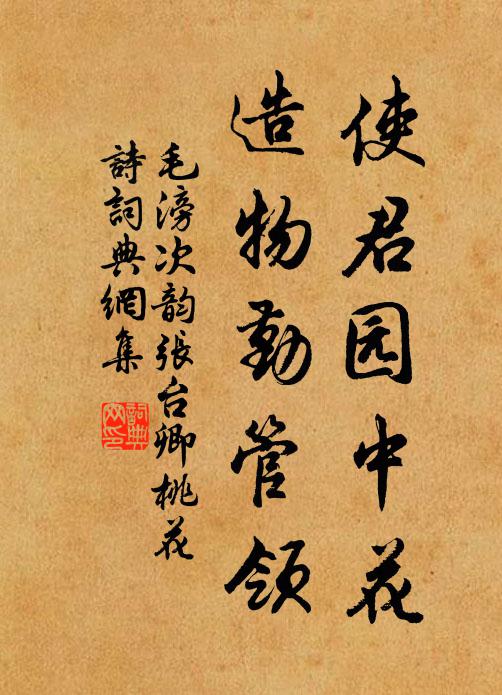 使君园中花
造物勤管领
毛滂次韵張台卿桃花
詩詞典網集
詞典网印